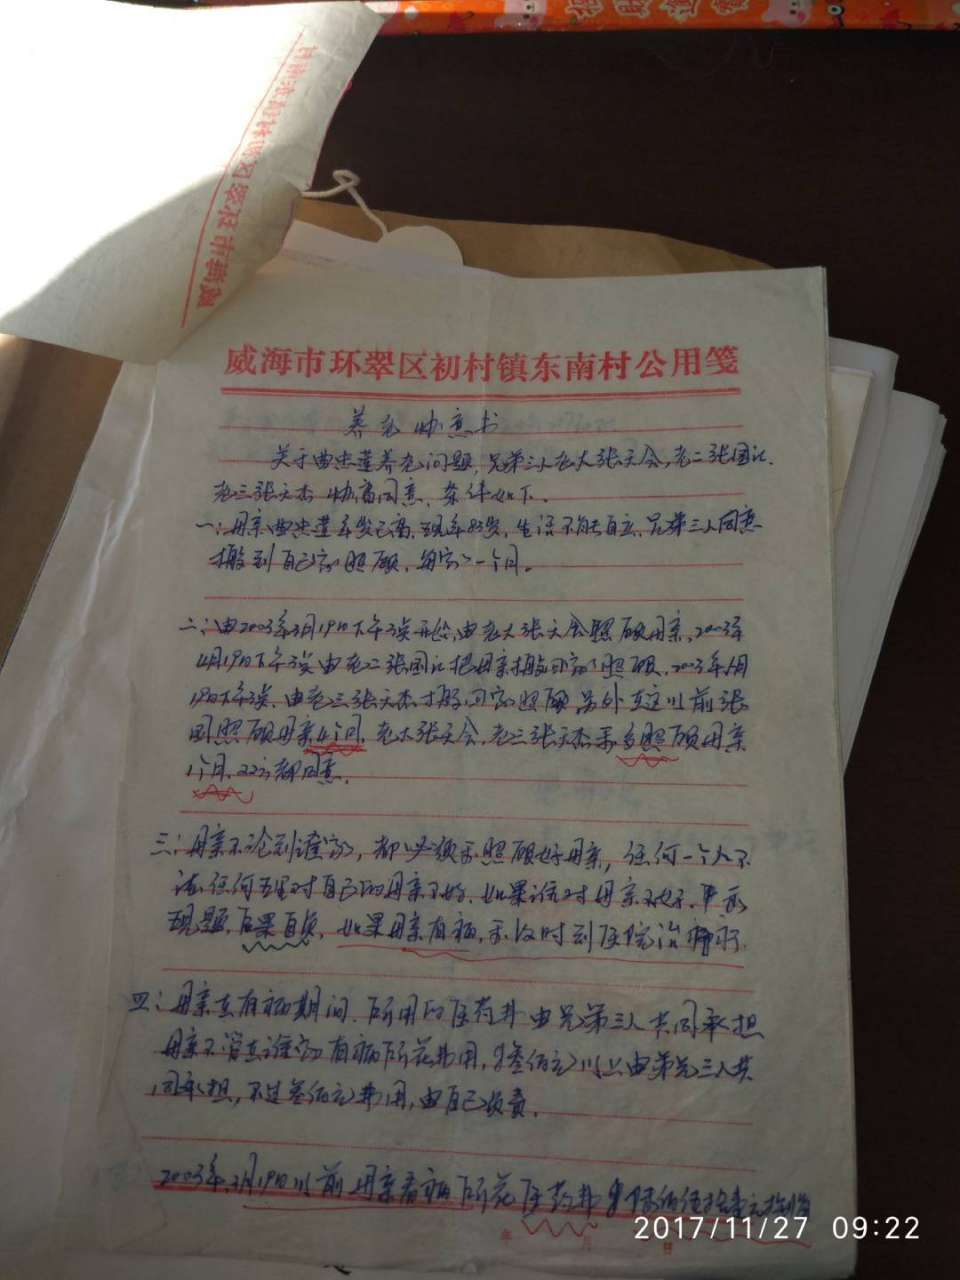 招财进宝
威海市环翠区初村镇东南村公用笺
养老协意书
关于曲忠莲养老问题,兄弟三人老大张天会,老二张国
老三张天杰协商同意,条件如下.
一:母亲曲忠莲年岁已高,现年83岁,生活不能自立,兄弟三人同意
搬到自己家照顾,每家一个月。
二:由2003年3月19日下午3时开始,由老大张天会照顾母亲,2003年
4月19日下午 由老二张国 把母亲搬回家照顾,2003年5月
19日下午 由老三张天杰搬回家照顾,另外在这以前张
国照顾母亲4个月,老大张天会,老三张天杰要多照顾母亲
1个月, 都同意.
三:母亲不论到谁家,都必须要照顾好母亲,任何一个人不
任何 对自己的母亲不好,如果谁对母亲不好,出
现题,后果自负,如果母亲有病,要及时到医院治疗.
四:母亲在有病期间,所用的医药费由兄弟三人共同承担
母亲不管在谁家有病所花费用,叁佰元以上由弟兄三人共
同承担,不过叁佰元费用,由自己负责.
2003年3月19日以前母亲看病所花医药费
年 月 日
2017/11/27 09:22